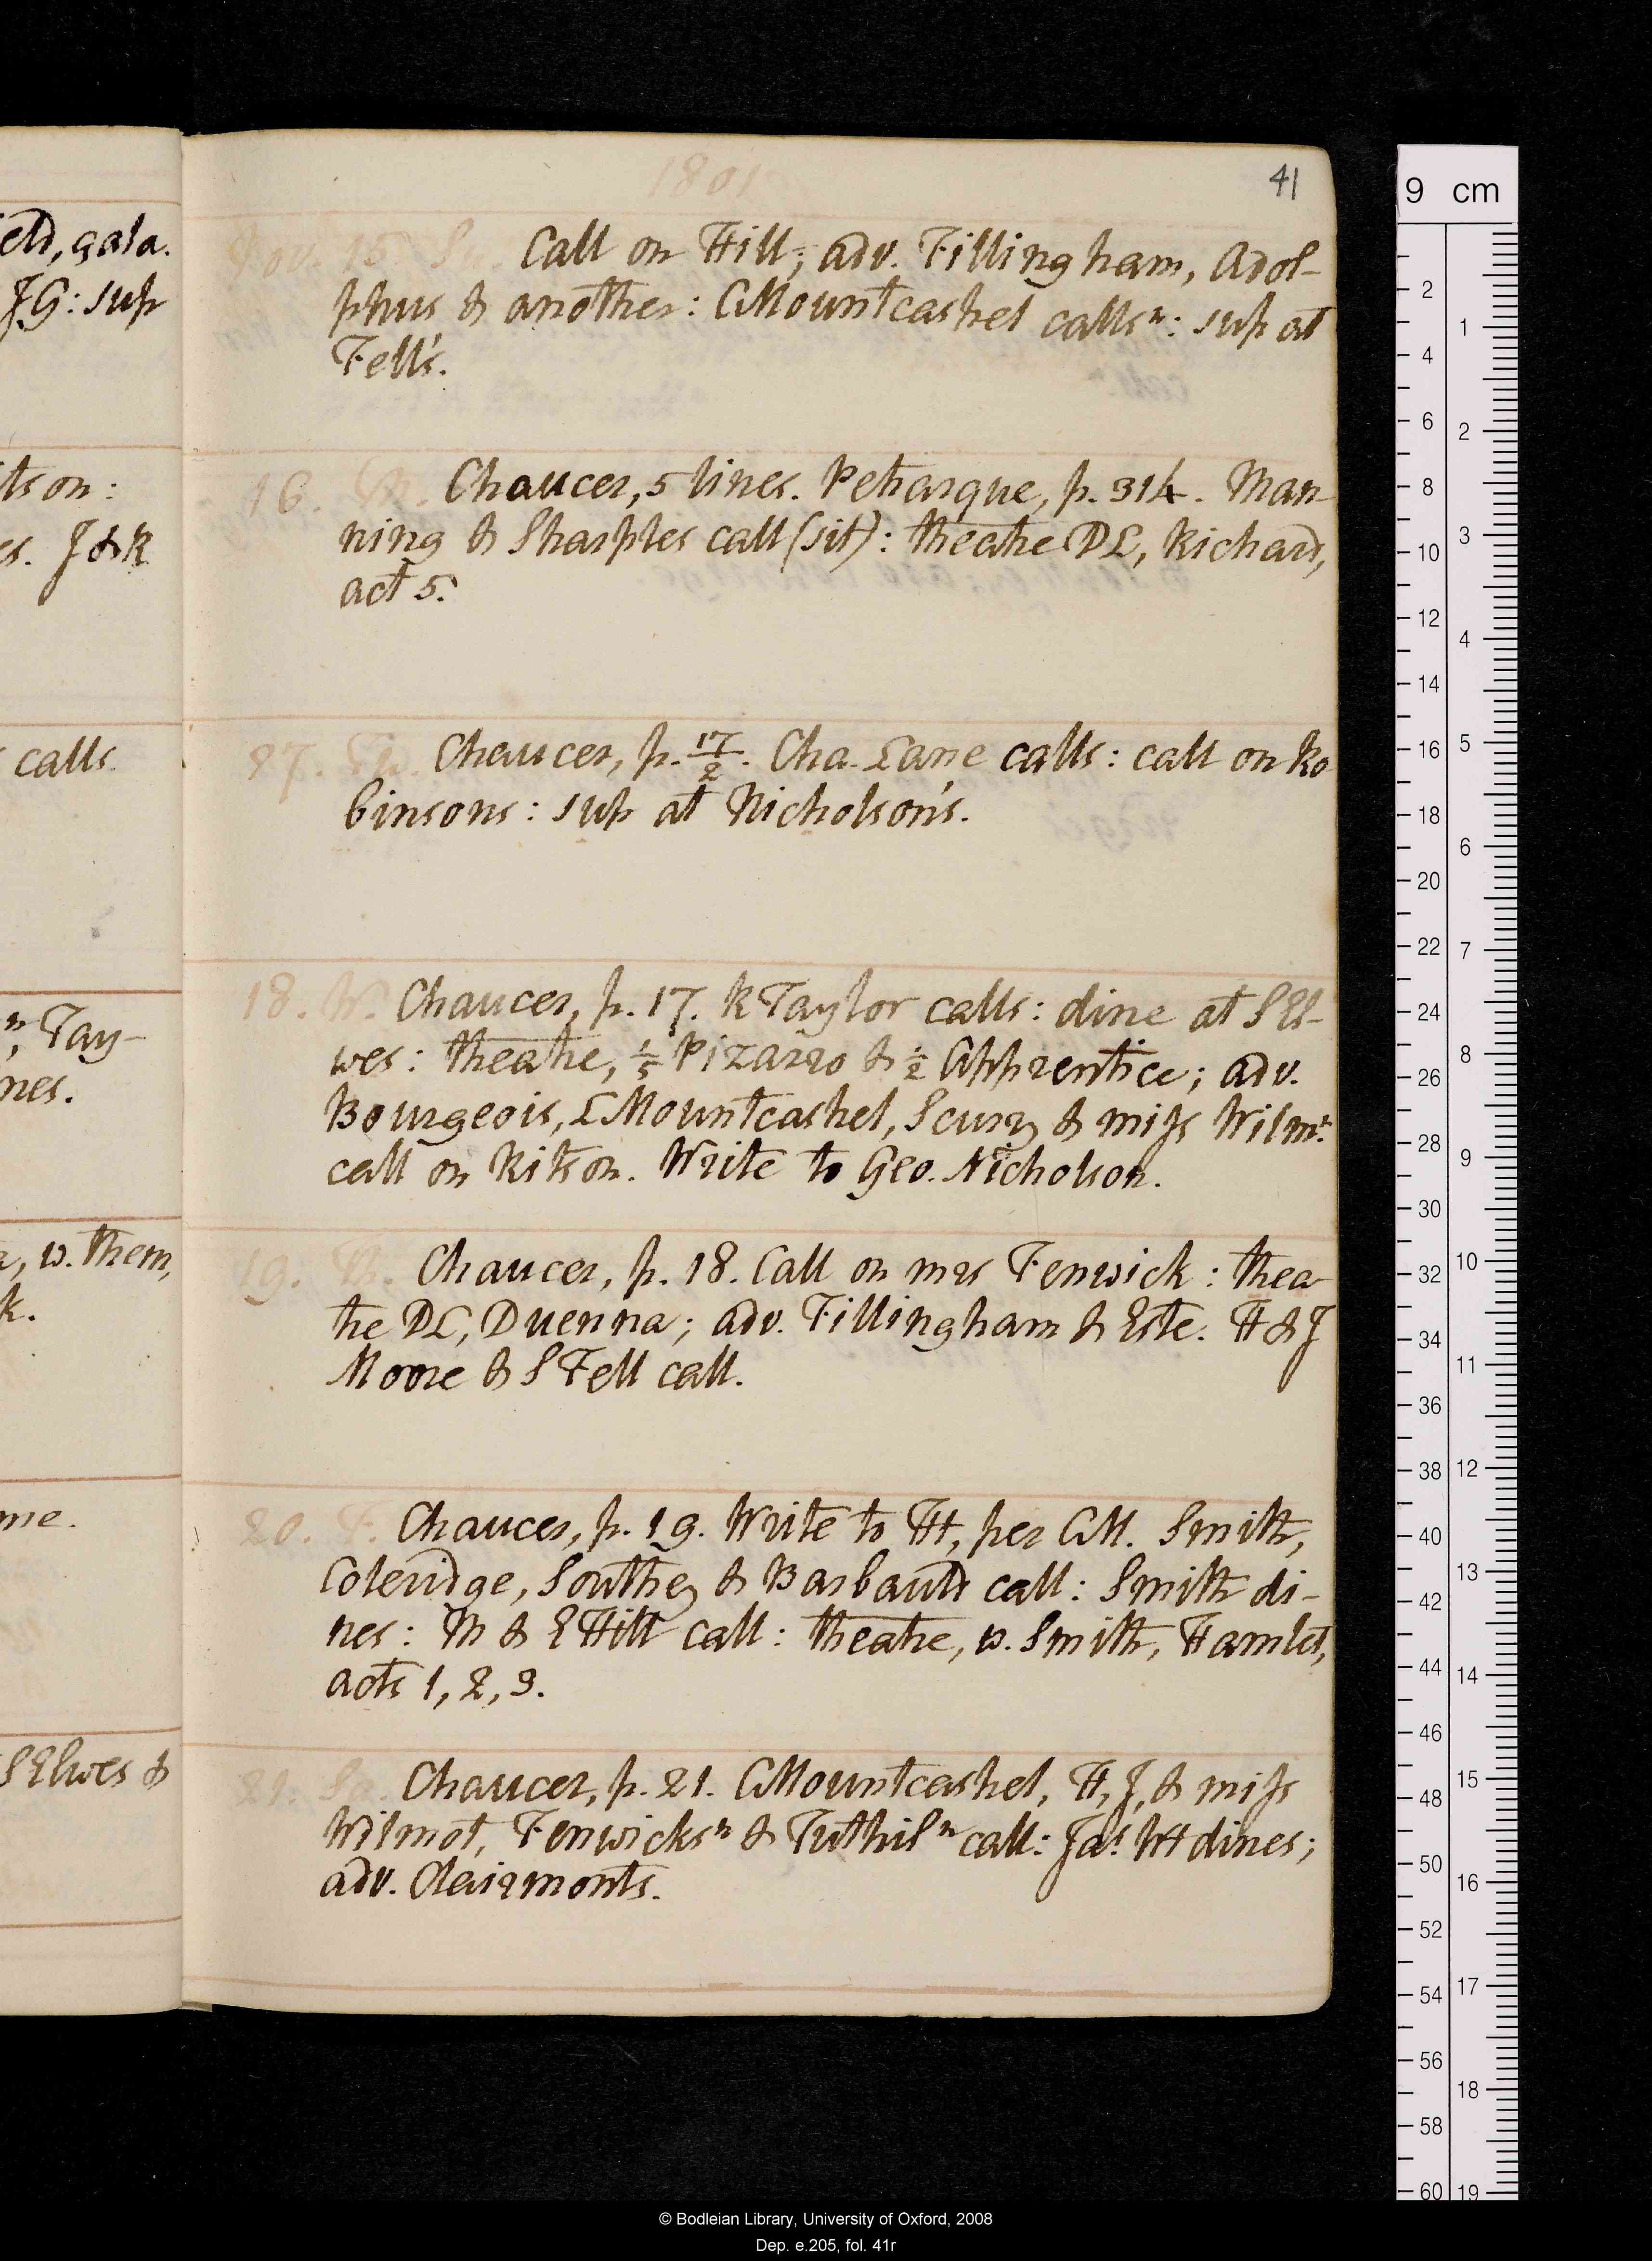 1801
41
eld, gala.
JG: sup
tson:
es. J & R
calls.
n, Tay-
nes.
a, w. them,
k.
me.
S Elwes &
Nov. 15. Su. Call on Hill; adv. Fillingham, Adol-
phus & another: CMountcashel callsn: sup at
Fell's.
16. M. Chaucer, 5 lines. Petrarque, p. 314. Man-
ning & Sharples call (sit): theatre DL, Richard,
act 5.
17. Tu. Chaucer, p. 17/2. Cha. Lane calls: call on Ro
binsons: sup at Nicholson's.
18. W. Chaucer, p. 17. R Taylor calls: dine at S El-
wes: theatre, 1/5 Pizarro & 1/2 Apprentice; adv.
Bourgeois, LMountcashel, Scurry & miss Wilmt:
call on Ritson. Write to Geo. Nicholson.
19. Th. Chaucer, p. 18. Call on mrs Fenwick: thea-
tre DL, Duenna; adv. Fillingham & Este. H & J
Moore & S Fell call.
20. F. Chaucer, p. 19. Write to TH, per CM. Smith,
Coleridge, Southey & Barbaulds call: Smith di-
nes: M & E Hill call: theatre, w. Smith, Hamlet,
acts 1, 2, 3.
21. Sa. Chaucer, p. 21. CMountcashel, H, J, & miss
Wilmot, Fenwicksn & Tuthiln call: Jas. WH dines;
adv. Clairmonts.
9 cm
2
4
6
8
10
12
14
16
18
20
22
24
26
28
30
32
34
36
38
40
42
44
46
48
50
52
54
56
58
60
1
2
3
4
5
6
7
8
9
10
11
12
13
14
15
16
17
18
19
© Bodleian Library, University of Oxford, 2008
Dep. e.205, fol. 41r